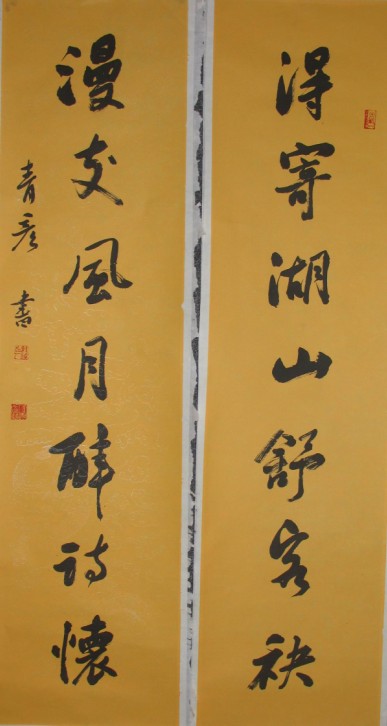 得寄湖山舒客袂
漫交风月醉诗怀
青彦书